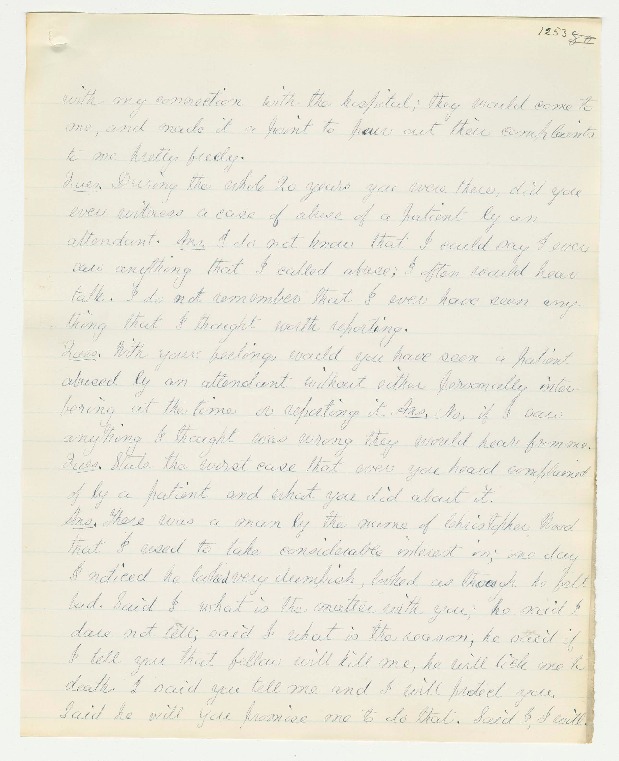 1253
with my connection with the hospital; they would come to
me, and made it a point to pour out their complaints
to me pretty freely.
Ques. During the whole 20 years you were there, did you
ever witness a case of abuse of a patient by an
attendant. Ans. I do not know that I could say I ever
saw anything that I called abuse; I often would hear
talk. I do not remember that I ever have seen any
thing that I thought worth reporting.
Ques. With your feelings would you have seen a patient
abused by an attendant without either personally inter
fering at the time or reporting it. Ans. No, if I saw
anything I thought was wrong they would hear from me.
Ques. State the worst case that ever you heard complained
of by a patient and what you did about it.
Ans. There was a man by the name of Christopher
that I used to take considerable interest in; one day
I noticed he looked very dumbish, looked as though he felt
bad. Said I what is the matter with you; he said I
dare not tell; said I what is the reason, he said if
I tell you that fellow will kill me, he will lick me to
death. I said you tell me and I will protect you.
Said he will you promise me to do that. Said I, I will.